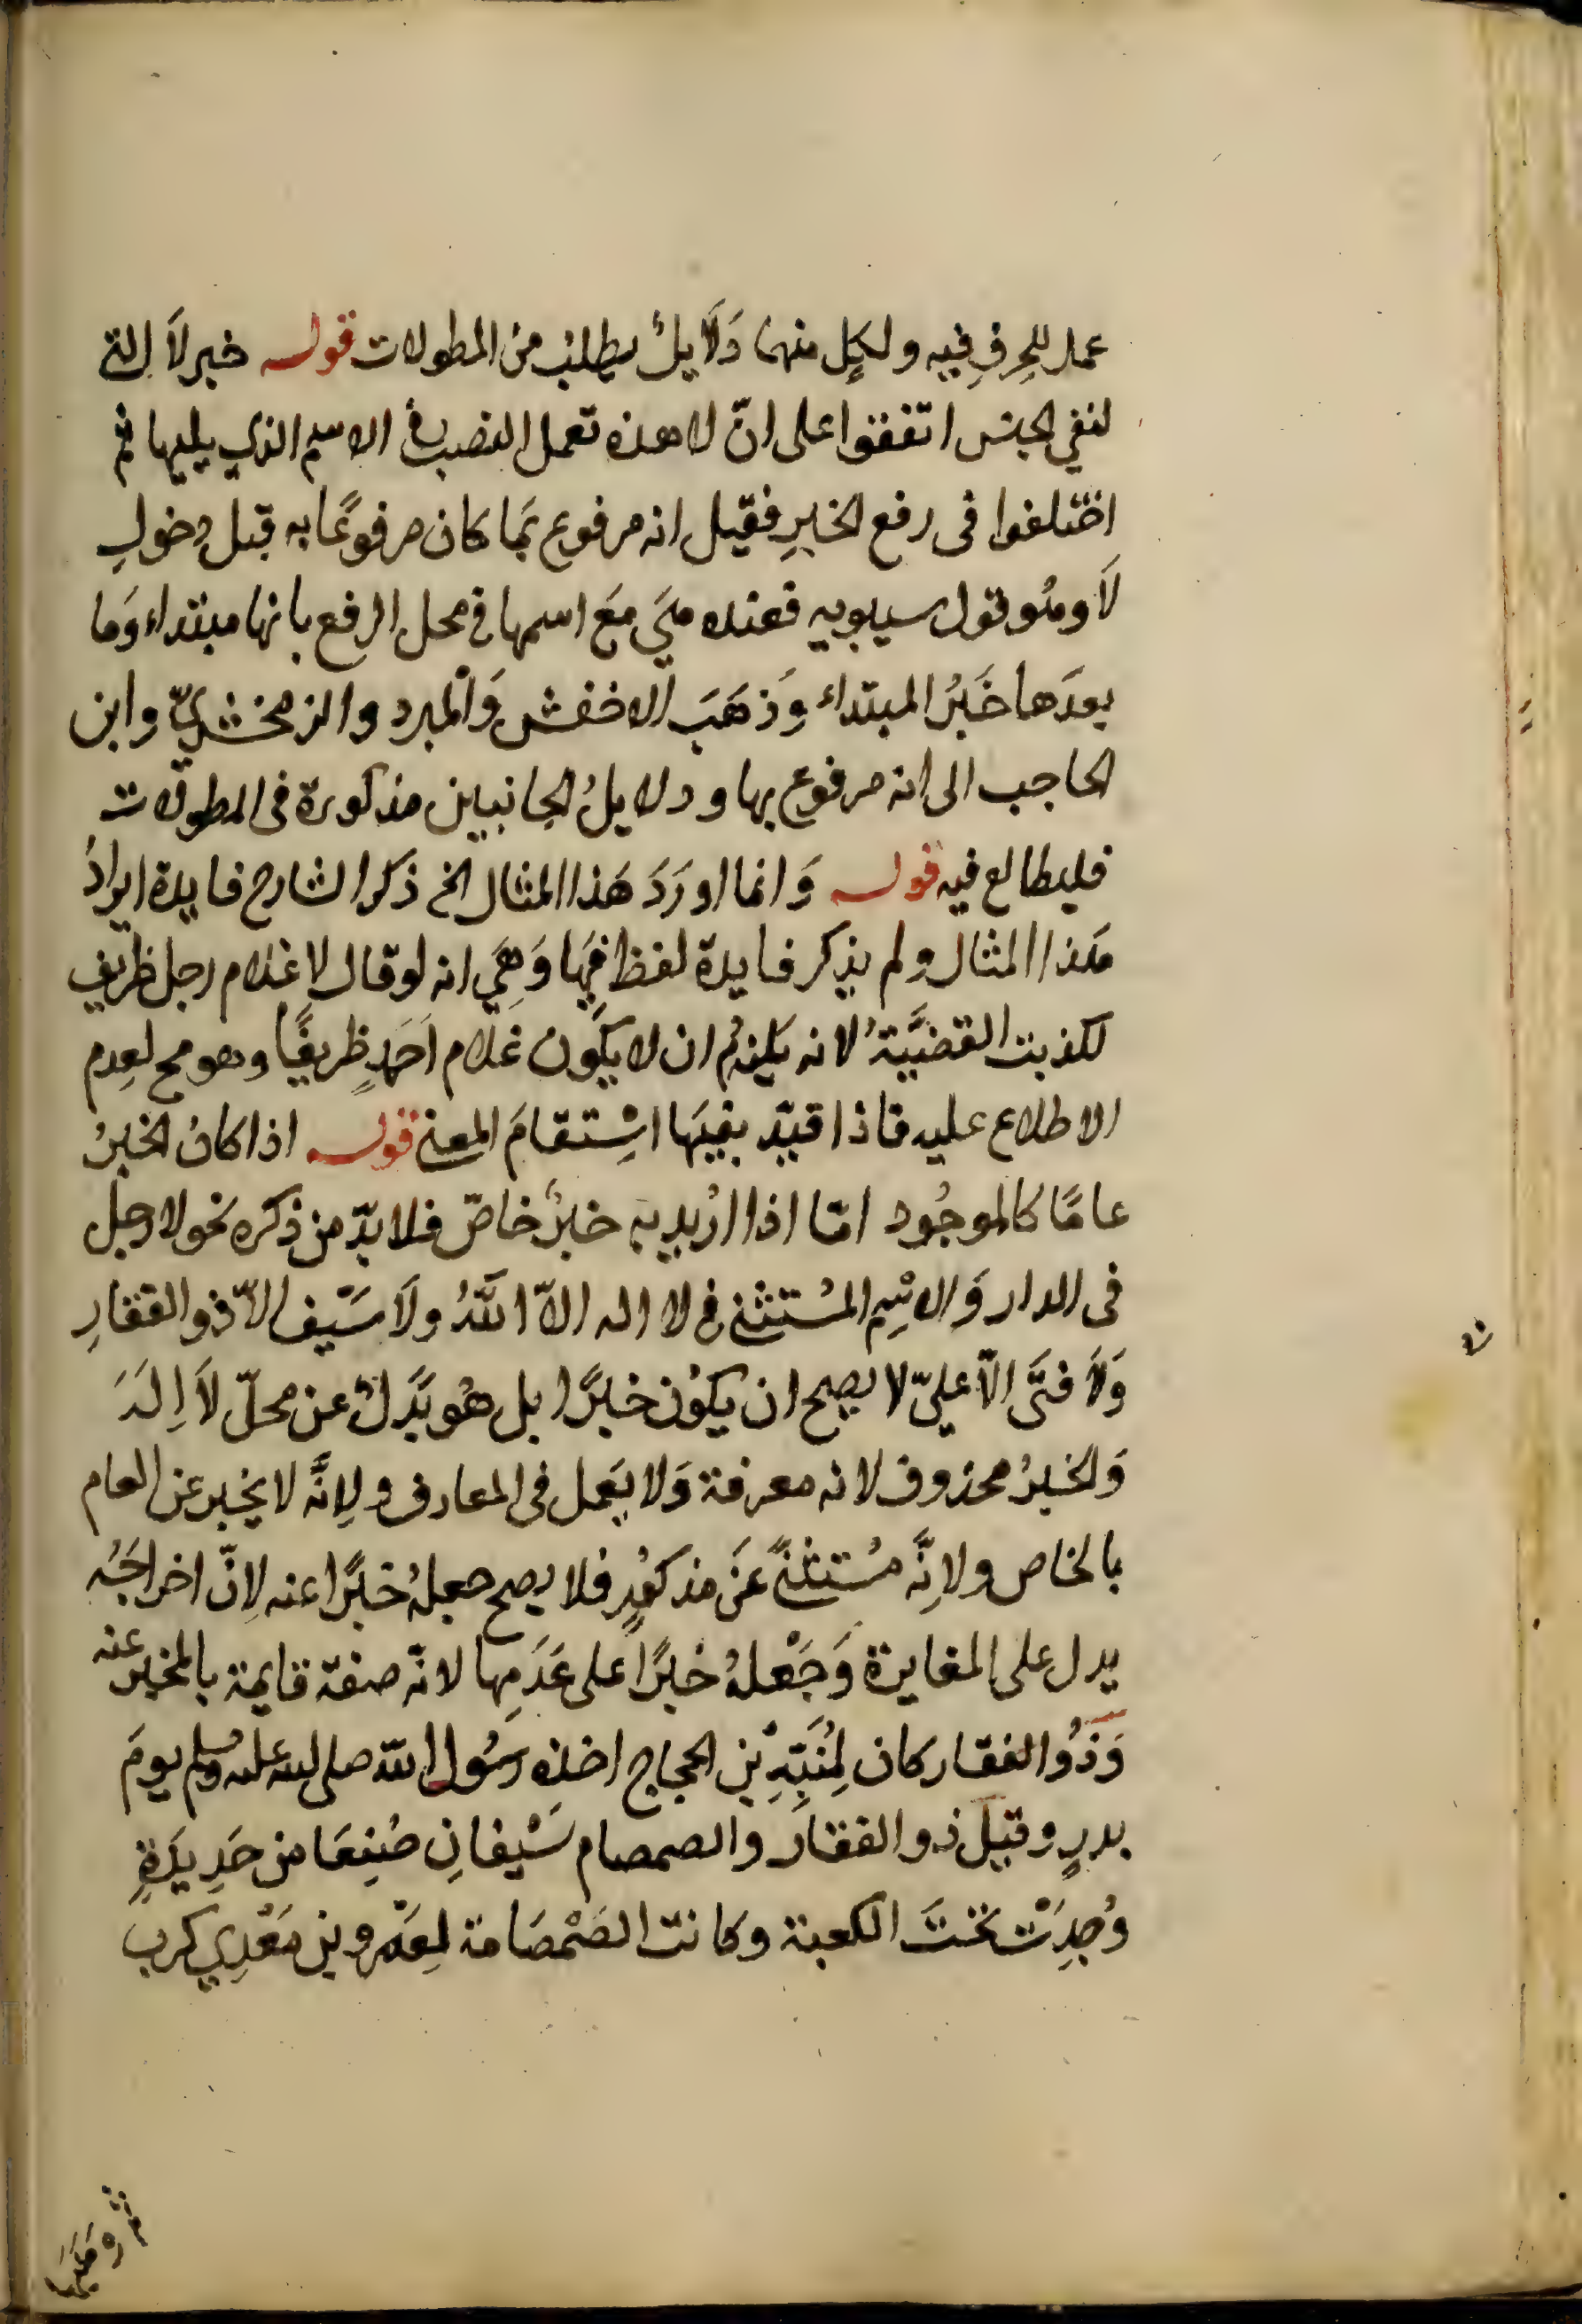 عمل للحرفِ فيه ولكلٍ منهما دَلَايلُ يطلبُ من المطولات قوله خبر لَا التى
لنفي الجنس اتفقوا على انّ لا هذه تعمل النصب فى الاسم الذي يليها ثم
اختلفوا فى رفع الخبرِ فقيل انه مرفوع بمَا كان مرفوعًا به قبل دخولِ
لَا وهُو قول سيبويه فعنده هيَ مَع اسمها في محل الرفع بانها مبتداء وَما
بعدَها خَبَرُ المبتداء وَذهَبَ الاخفش وَالمبرد والزمخشريّ وابن
الحاجب الى انه مرفوع بها ودلايلُ الجانبين مذكورة فى المطولات
فليطالع فيه قوله وَانما اورَدَ هَذا المثال الخ ذكر الشارح فايدة ايرادُ
هَذا المثال ولم يذكر فايدة لفظ فِيهَا وَهِيَ انه لو قال لا غلام رجل ظريف
لكذبت القضيَّةُ لانه يَلزمُ ان لا يكون غلام اَحَدٍ ظريفًا وهو مح لعدم
الاطلاع عليه فاذا قيّد بفيهَا اسْتقامَ المعنى قوله اذا كانُ الخبرُ
عامًا كالموجُود امّا اذا اُريد به خبرٌ خاصّ فلا بدّ من ذكره نحو لا رجل
فى الدار وَالاسْم المسُتثنى فى لا اله الاّ اللّهُ ولَا سَيْف الاّ ذو الفقارِ
وَلَا فتَى الاّ عليّ لا يصح ان يكوُن خبرًا بل هُو بَدَلٌ عن محلّ لَا اِلَهَ
وَالخبرُ محذوف لانه معرفة وَلا يعَمل فى المعارف ولاِنَّه لا يخبر عن العام
بالخاص ولاِنَّه مسُتثنًى عَن مذكوُرٍ فلا يصح جعلهُ خبرًا عنه لاِنّ اخراجَهُ
يدل على المغايرة وَجَعْلهُ خبرًا على عَدَمِها لانّه صفة قايمة بالمخبر عنه
وَذوُ الفقار كان لِمُنَبّهِ بْنِ الحجاج اخذه رسُول الله صلى الله عليه وسلم يومَ
بدرٍ وقيلَ ذو الفقار والصمصام سَيْفانِ صُنِعَا من حَدِيدَةٍ
وُجِدَتْ تحْتَ الكعبة وكانت الصَمْصَامة لِعَمْرو بن مَعْدِي كرب